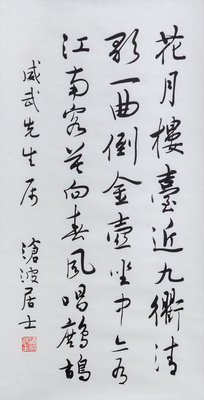 花月樓臺近九衢清
歌一曲倒金壺坐中亦有
江南客莫向春風唱鷓鴣
咸武先生屬 滄波居士